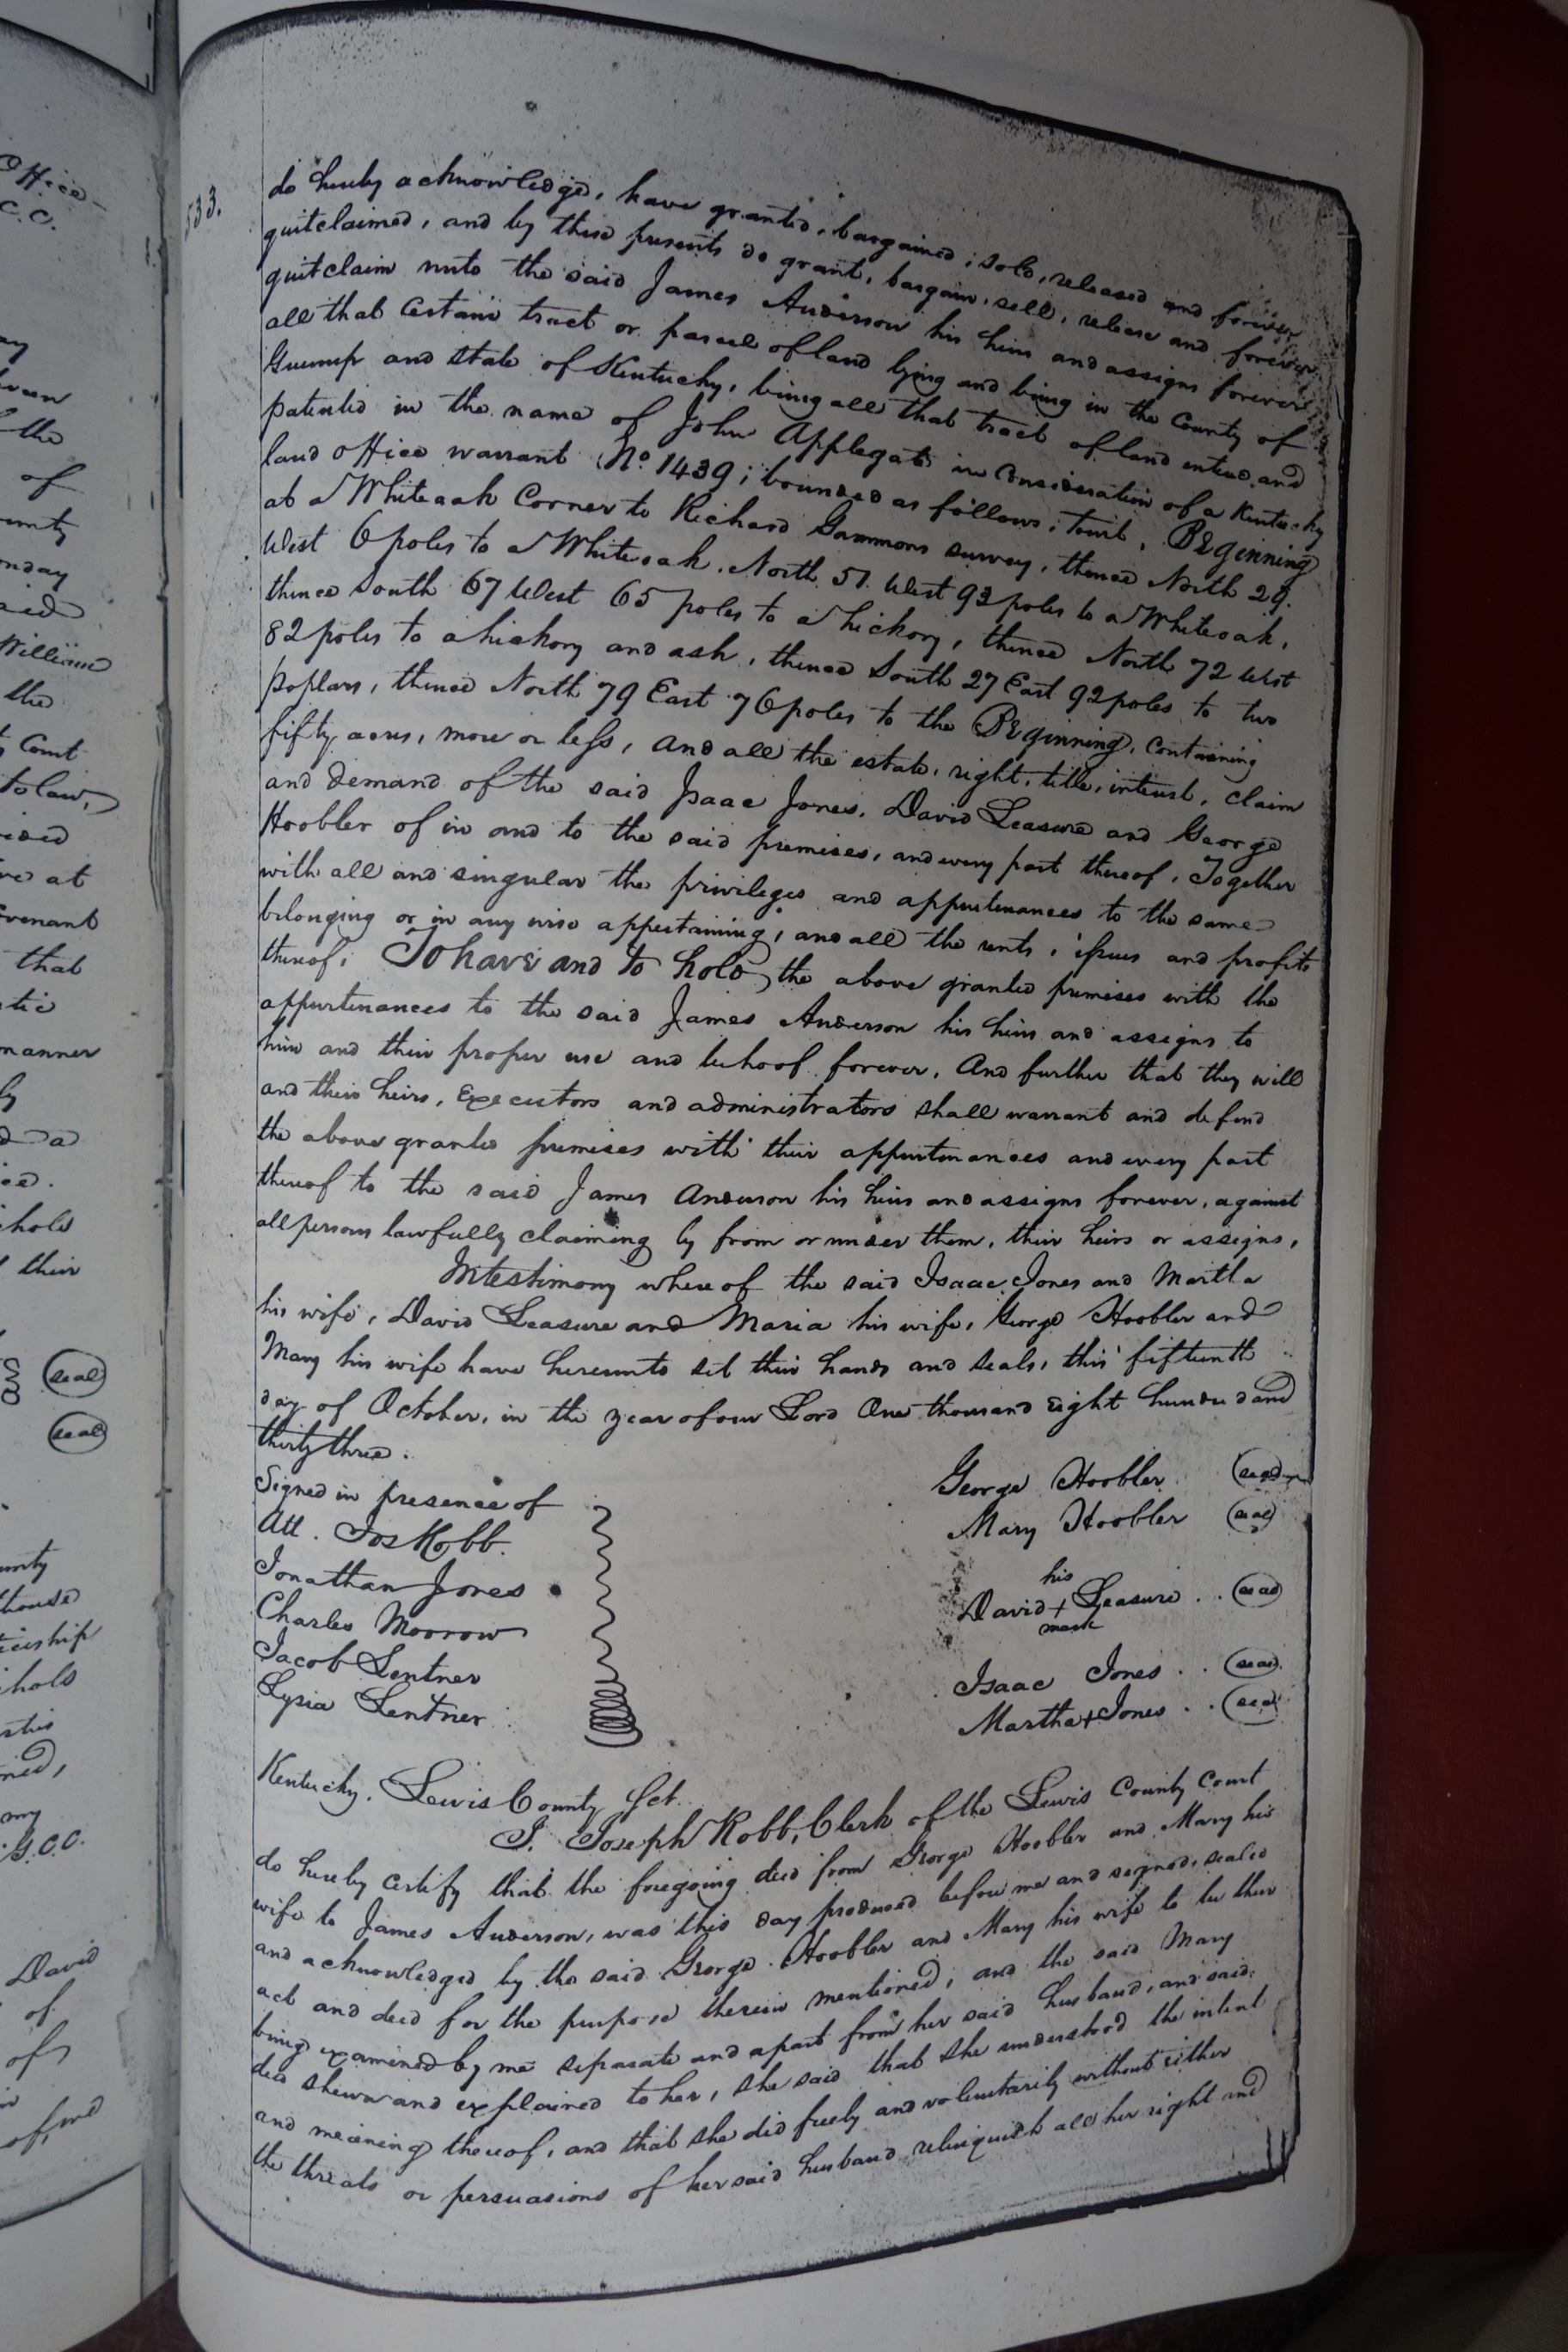 Office
C.C.
the
of
unty
onday
aid
William
the
Court
to law,
at
venant
that
manner
hold
their
seal
seal
David
of
of
533.
do hereby acknowledge, have granted, bargained, sold, released and forever
quitclaimed, and by these presents do grant, bargain, sell, release and forever
quitclaim unto the said James Anderson his heirs and assigns forever
all that certain tract or parcel of land lying and being in the County of
Greenup and State of Kentucky, being all that tract of land entered and
patented in the name of John Applegate in consideration of a Kentucky
land office warrant No 1439; bounded as follows; towit, Beginning
at a Whiteoak Corner to Richard Gammons survey, thence North 29.
West 6 poles to a Whiteoak, North 51 West 92 poles to a Whiteoak,
thence South 67 West 65 poles to a hickory, thence North 72 West
82 poles to a hickory and ash, thence South 27 East 92 poles to two
poplars, thence North 79 East 76 poles to the Beginning, containing
fifty acres, more or less, and all the estate, right, title, interest, claim
and demand of the said Isaac Jones, David Leasure and George
Hoobler of in and to the said premises, and every part thereof, Together
with all and singular the privileges and appurtenances to the same
belonging or in any wise appertaining, and all the rents, issues and profits
thereof; To have and to hold the above granted premises with the
appurtenances to the said James Anderson his heirs and assigns to
him and their proper use and behoof forever, And further that they will
and their heirs, Executors and administrators shall warrant and defend
the above granted premises with their appurtenances and every part
thereof to the said James Anderson his heirs and assigns forever, against
all persons lawfully claiming by from or under them, their heirs or assigns,
In testimony whereof the said Isaac Jones and Martha
his wife, David Leasure and Maria his wife, George Hoobler and
Mary his wife have hereunto set their hands and seals, this fifteenth
day of October, in the year of our Lord One thousand eight hundred and
thirty three.
Signed in presence of
Att. Jos Robb.
Jonathan Jones
Charles Morrow
Jacob Lentner
Lysia Lentner
George Hoobler seal
Mary Hoobler seal
his
David + Leasure .. seal
mark
Isaac Jones .. seal
Martha + Jones .. seal
Kentucky. Lewis County Sct.
I. Joseph Robb, Clerk of the Lewis County Court
do hereby certify that the foregoing deed from George Hoobler and Mary his
wife to James Anderson, was this day produced before me and signed, sealed
and acknowledged by the said George Hoobler and Mary his wife to be their
act and deed for the purpose therein mentioned, and the said Mary
being examined by me separate and apart from her said husband, and said
deed shewn and explained to her, she said that she understood the intent
and meaning thereof, and that she did freely and voluntarily without either
the threats or persuasions of her said husband relinquish all her right and